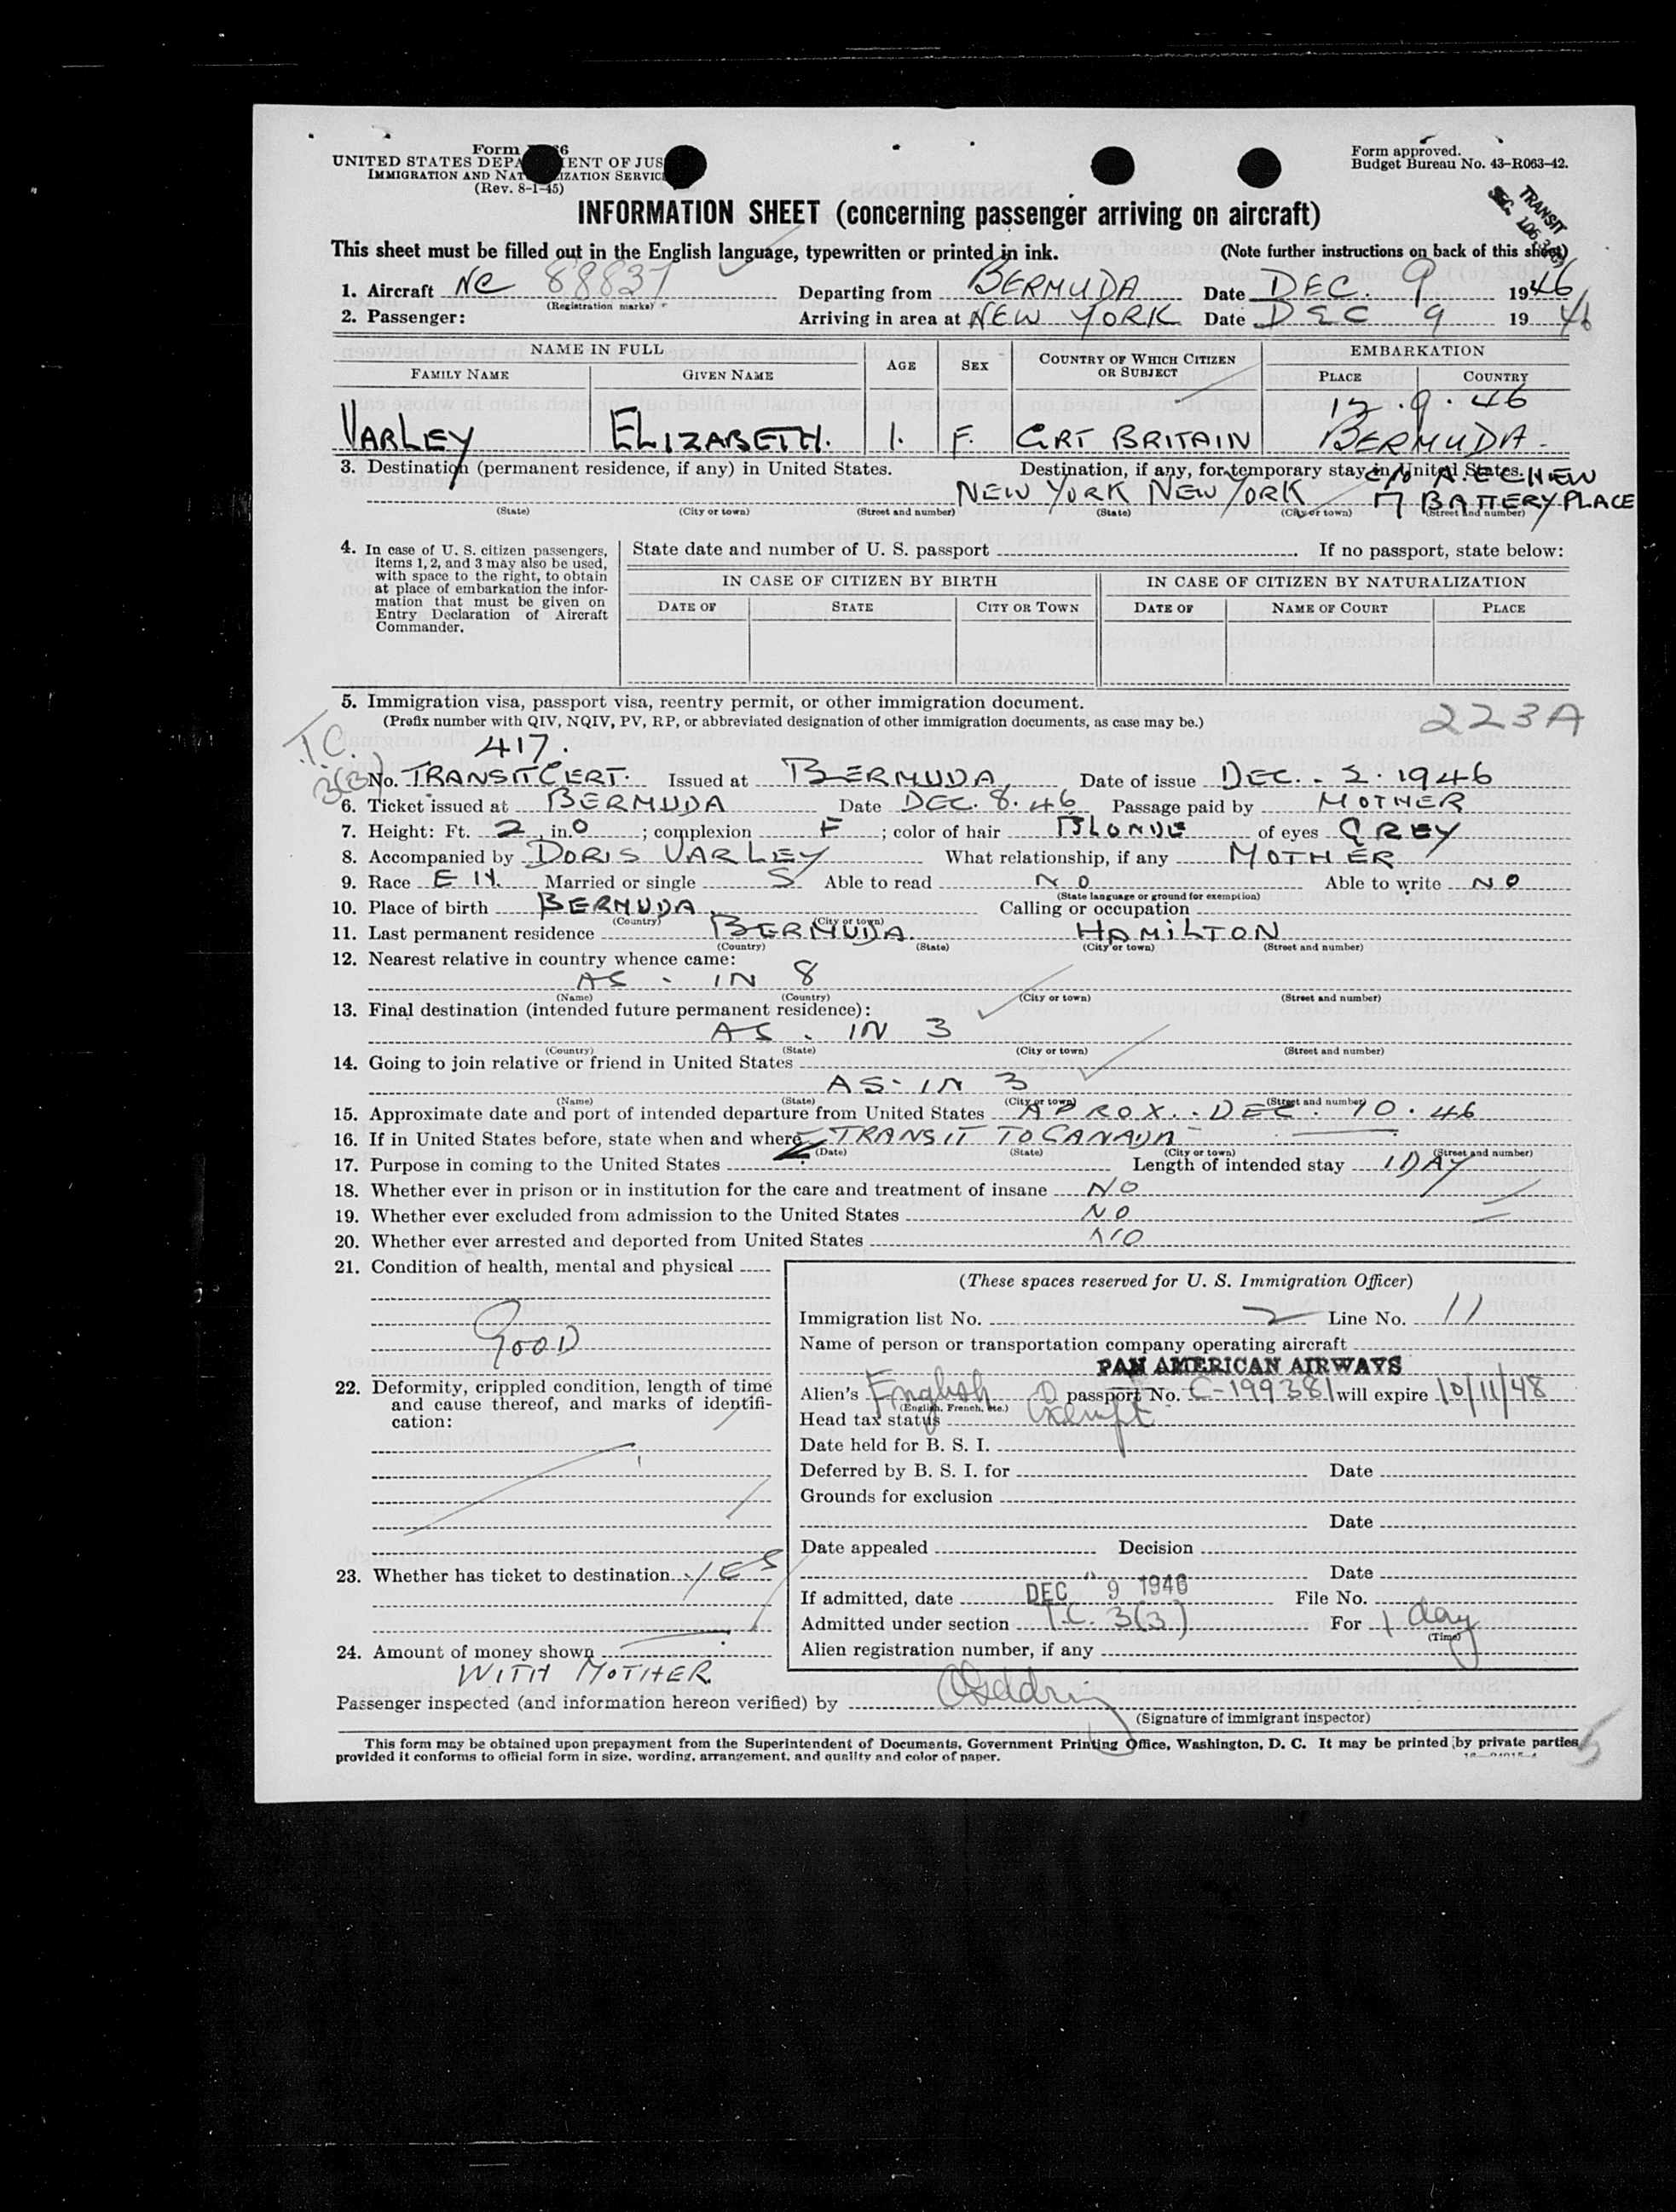 Form 6
UNITED STATES DEPA ENT OF JUS
IMMIGRATION AND NAT IZATION SERVIC
(Rev. 8-1-45)
Form approved.
Budget Bureau No. 43-R063-42.
TRANSIT
SEC.
INFORMATION SHEET (concerning passenger arriving on aircraft)
This sheet must be filled out in the English language, typewritten or printed in ink. (Note further instructions on back of this sheet)
1. Aircraft NC 88837 Departing from BERMUDA Date DEC. 9 1946
(Registration marks)
2. Passenger: Arriving in area at NEW YORK Date DEC 9 19 46
NAME IN FULL AGE SEX COUNTRY OF WHICH CITIZEN OR SUBJECT EMBARKATION
FAMILY NAME GIVEN NAME PLACE COUNTRY
12.9.46
VARLEY ELIZABETH. 1. F. GRT BRITAIN BERMUDA
3. Destination (permanent residence, if any) in United States. Destination, if any, for temporary stay in United States.
c/o A. E CHEW
NEW YORK NEW YORK 17 BATTERY PLACE
(State) (City or town) (Street and number) (State) (City or town) (Street and number)
4. In case of U. S. citizen passengers, items 1, 2, and 3 may also be used, with space to the right, to obtain at place of embarkation the information that must be given on Entry Declaration of Aircraft Commander.
State date and number of U. S. passport If no passport, state below:
IN CASE OF CITIZEN BY BIRTH IN CASE OF CITIZEN BY NATURALIZATION
DATE OF STATE CITY OR TOWN DATE OF NAME OF COURT PLACE
5. Immigration visa, passport visa, reentry permit, or other immigration document.
(Prefix number with QIV, NQIV, PV, RP, or abbreviated designation of other immigration documents, as case may be.) 223A
T.C. 417.
3(3) No. TRANSIT CERT. Issued at BERMUDA Date of issue DEC. 2. 1946
6. Ticket issued at BERMUDA Date DEC. 8. 46 Passage paid by MOTHER
7. Height: Ft. 2, in. 0; complexion F; color of hair BLONDE of eyes GREY
8. Accompanied by DORIS VARLEY What relationship, if any MOTHER
9. Race EN. Married or single S Able to read NO Able to write NO
(State language or ground for exemption)
10. Place of birth BERMUDA Calling or occupation
(Country) (City or town)
11. Last permanent residence BERMUDA HAMILTON
(Country) (State) (City or town) (Street and number)
12. Nearest relative in country whence came:
AS - IN 8
(Name) (Country) (City or town) (Street and number)
13. Final destination (intended future permanent residence):
AS - IN 3
(Country) (State) (City or town) (Street and number)
14. Going to join relative or friend in United States
AS - IN 3
(Name) (State) (City or town) (Street and number)
15. Approximate date and port of intended departure from United States APPROX. DEC. 10. 46
16. If in United States before, state when and where TRANSIT TO CANADA
(Date) (State) (City or town) (Street and number)
17. Purpose in coming to the United States Length of intended stay 1 DAY
18. Whether ever in prison or in institution for the care and treatment of insane NO
19. Whether ever excluded from admission to the United States NO
20. Whether ever arrested and deported from United States NO
21. Condition of health, mental and physical
GOOD
22. Deformity, crippled condition, length of time and cause thereof, and marks of identification:
23. Whether has ticket to destination YES
24. Amount of money shown
WITH MOTHER
(These spaces reserved for U. S. Immigration Officer)
Immigration list No. 2 Line No. 11
Name of person or transportation company operating aircraft
PAN AMERICAN AIRWAYS
Alien's English passport No. C-199381 will expire 10/11/48
(English, French, etc.)
Head tax status Exempt
Date held for B. S. I.
Deferred by B. S. I. for Date
Grounds for exclusion
Date
Date appealed Decision
Date
If admitted, date DEC 9 1946 File No.
Admitted under section T.C. 3(3) For 1 day
(Time)
Alien registration number, if any
Passenger inspected (and information hereon verified) by
(Signature of immigrant inspector)
This form may be obtained upon prepayment from the Superintendent of Documents, Government Printing Office, Washington, D. C. It may be printed by private parties
provided it conforms to official form in size, wording, arrangement, and quality and color of paper.